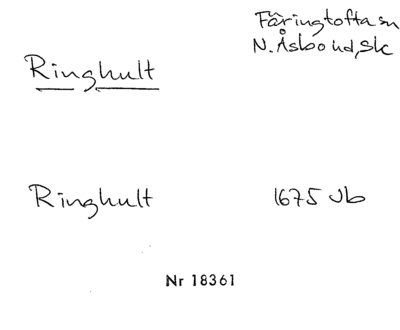 Färingtofta sn
N. Åsbo hd, Sk
Ringhult
Ringhult 1675 Jb
Nr 18361